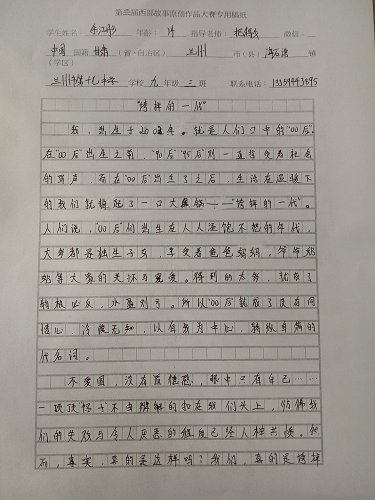 第三届西部故事原创作品大赛专用稿纸
学生姓名： 年龄： 14 指导老师： 微信：
中国 国籍 甘肃 （省·自治区） 兰州 市（县） 镇
（学区）
兰州市第十九中学 学校 九 年级 三 班 联系电话：
“垮掉的一代”
我，出生于2002年。就是人们口中的“00后”。
在“00后”出生之前，“90后”“95后”则一直接受着社会
的骂声，而在“00后”出生了之后，生活在温室下
的我们就背起了一口大黑锅——“垮掉的一代”。
人们说，“00后”们出生在人人温饱不愁的年代，
大多都是独生子女，享受着爸爸妈妈，爷爷奶
奶等大家的关怀与宠爱。得到的太多，就成了
物极必反，水盈则亏。所以“00后”就成了没有同
情心，冷傲无知，以自我为中心，骄纵自满的
代名词。
不爱国，没有責任感，眼中只有自己……
一顶顶“帽子”不由辩解的扣在我们头上，仿佛我
们的堕落与令人厌恶的程度已经人神共愤。然
而，真实，真的是这样吗？我们，真的是垮掉